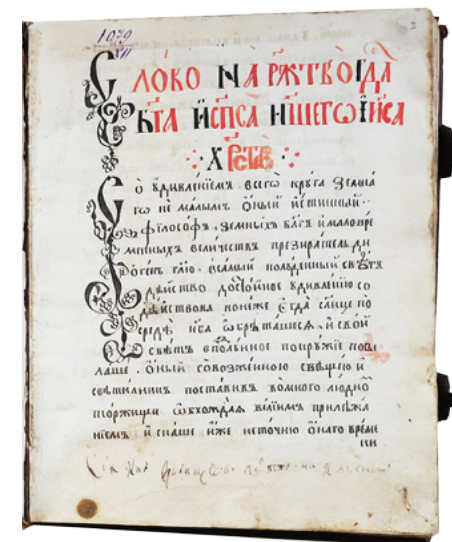 1079
XII
СЛОВО НА РЖ҃ТВО Г҃ДА
Б҃ГА И СП҃СА Н҃ШЕГѠ ІИ҃СА
ХР҃СТ
Со удивленїемъ всегѡ круга земна
гѡ не малымъ ѻный истинный
философъ. земныхъ благъ и малопре
менныхъ величествъ презиратель ди
ѻгенъ гл҃ю. всамый полуденный свѣтъ
дѣйство достойное удивлению со
дѣйствова понеже егда слн҃це по
средѣ нб҃а ѡбрѣташеся, и свой
свѣтъ
лаше. ѻный совозженною свѣщею и
свѣтилникъ поставивъ вомного людно
торжищи ѡбхождая велїимъ прилѣжа
нїемъ и снаше иже неточию ѻнаго време
ни